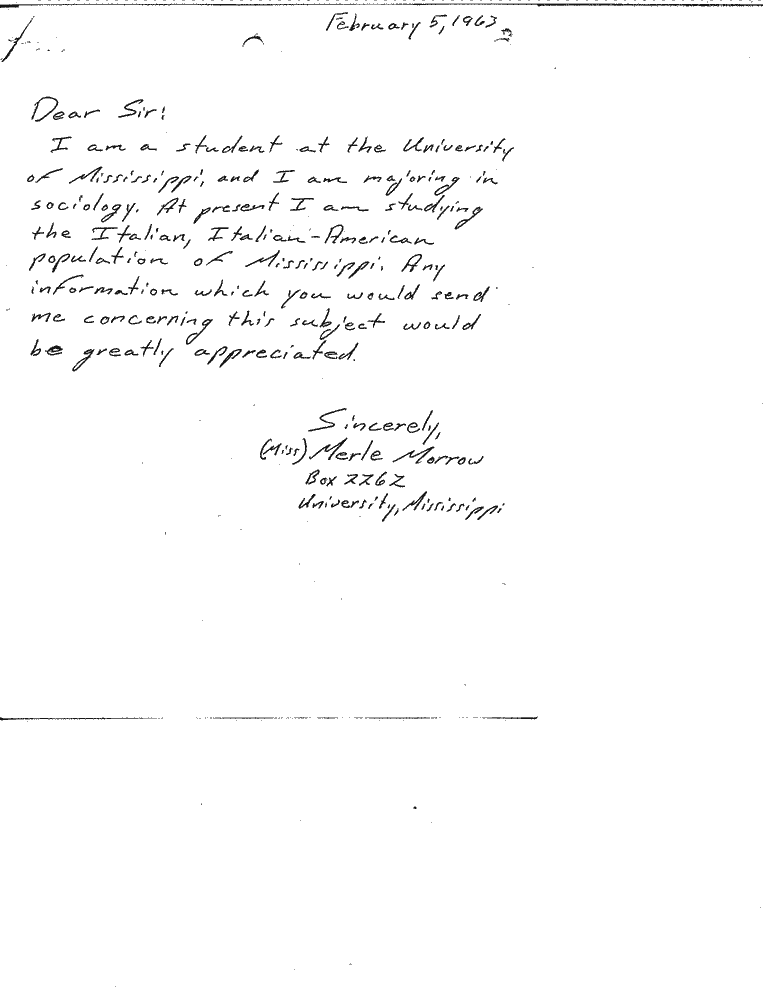 February 5, 1963
Dear Sir:
I am a student at the University
of Mississippi, and I am majoring in
sociology. At present I am studying
the Italian, Italian-American
population of Mississippi. Any
information which you would send
me concerning this subject would
be greatly appreciated.
Sincerely,
(Miss) Merle Morrow
Box 2262
University, Mississippi